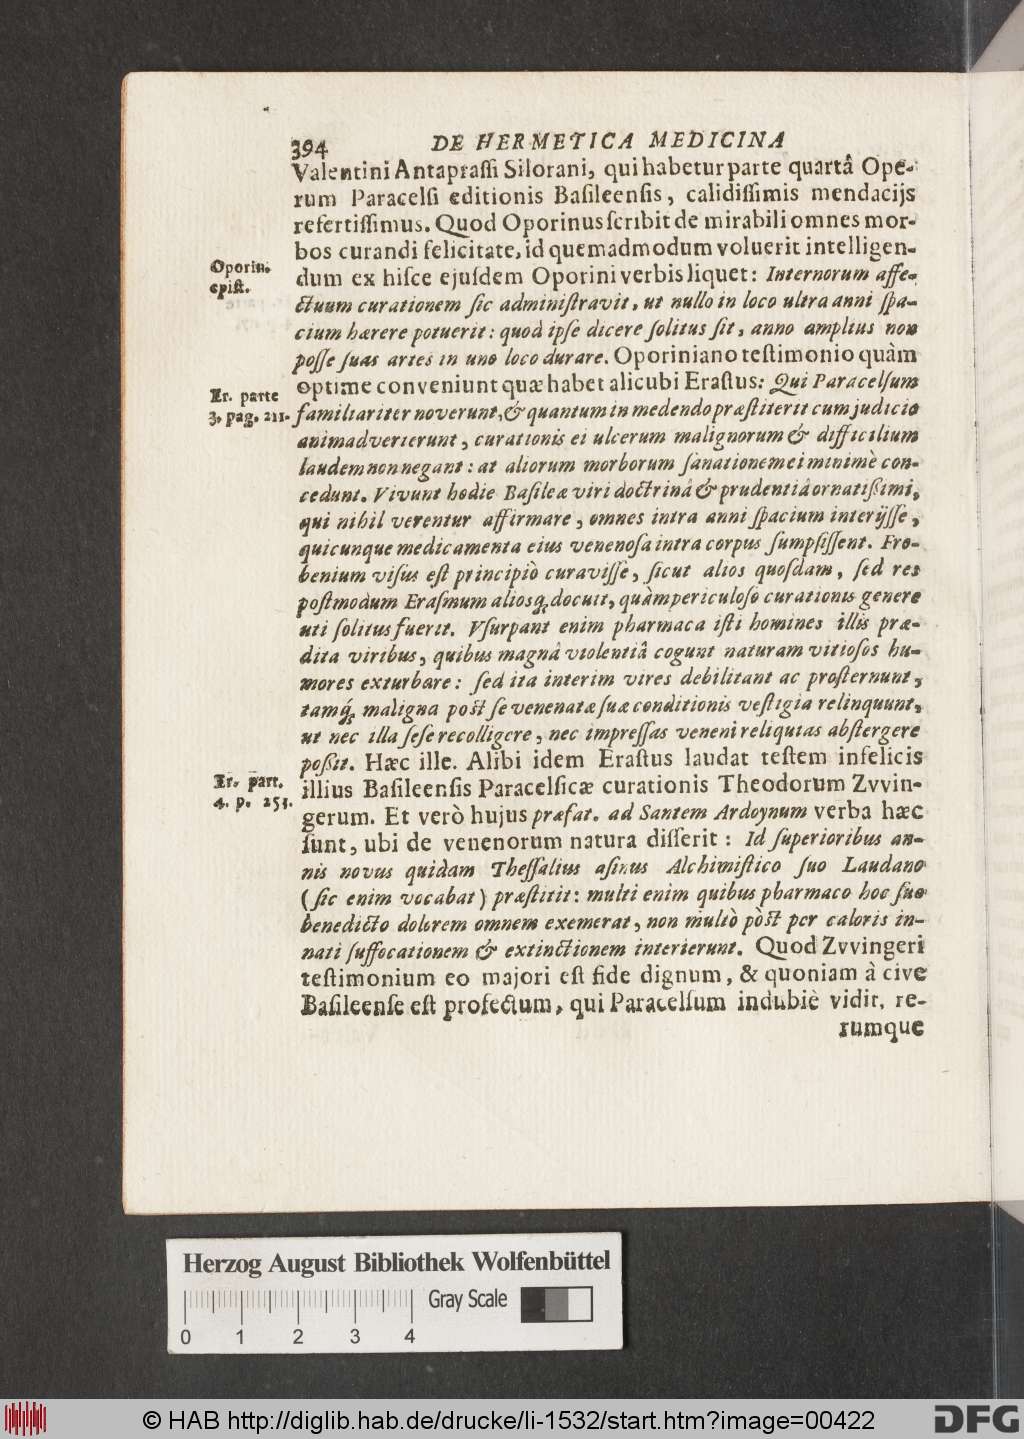 394 DE HERMETICA MEDICINA
Valentini Antaprassi Silorani, qui habetur parte quartâ Ope-
rum Paracelsi editionis Basileensis, calidissimis mendacijs
refertissimus. Quod Oporinus scribit de mirabili omnes mor-
bos curandi felicitate, id quemadmodum voluerit intelligen-
Oporin.
epist.
dum ex hisce ejusdem Oporini verbis liquet: Internorum affe-
ctuum curationem sic administravit, ut nullo in loco ultra anni spa-
cium hærere potuerit: quod ipse dicere solitus sit, anno amplius non
posse suas artes in uno loco durare. Oporiniano testimonio quàm
optime conveniunt quæ habet alicubi Erastus: Qui Paracelsum
Er. parte
3. pag. 211.
familiariter noverunt, & quantum in medendo præstiterit cum judicio
animadverterunt, curationis ei ulcerum malignorum & difficilium
laudem non negant: at aliorum morborum sanationem ei minimè con-
cedunt. Vivunt hodie Basileæ viri doctrinâ & prudentiâ ornatißimi,
qui nihil verentur affirmare, omnes intra anni spacium interijsse,
quicunque medicamenta eius venenosa intra corpus sumpsissent. Fro-
benium visus est principiò curavisse, sicut alios quosdam, sed res
postmodum Erasmum aliosq; docuit, quàm periculoso curationis genere
uti solitus fuerit. Vsurpant enim pharmaca isti homines illis præ-
dita viribus, quibus magnâ violentiâ cogunt naturam vitiosos hu-
mores exturbare: sed ita interim vires debilitant ac prosternunt,
tamq; maligna post se venenatæ suæ conditionis vestigia relinquunt,
ut nec illa sese recolligere, nec impressas veneni reliquias abstergere
poßit. Hæc ille. Alibi idem Erastus laudat testem infelicis
Er. part.
4. p. 253.
illius Basileensis Paracelsicæ curationis Theodorum Zvvin-
gerum. Et verò hujus præfat. ad Santem Ardoynum verba hæc
sunt, ubi de venenorum natura disserit: Id superioribus an-
nis novus quidam Thessalius asinus Alchimistico suo Laudano
(sic enim vocabat) præstitit: multi enim quibus pharmaco hoc suo
benedicto dolorem omnem exemerat, non multò pòst per caloris in-
nati suffocationem & extinctionem interierunt. Quod Zvvingeri
testimonium eo majori est fide dignum, & quoniam à cive
Basileense est profectum, qui Paracelsum indubiè vidit, re-
rumque
Herzog August Bibliothek Wolfenbüttel
Gray Scale
0 1 2 3 4
© HAB http://diglib.hab.de/drucke/li-1532/start.htm?image=00422
DFG